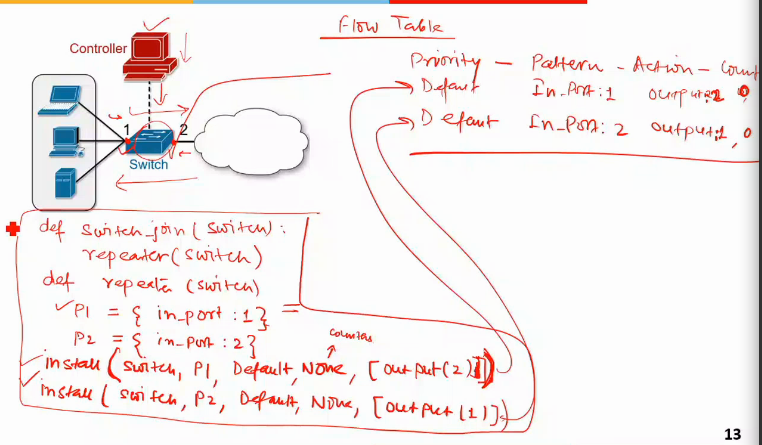 Flow Table
Controller
Priority - Pattern - Action - Count
Default In_Port: 1 output: 2, 0
Default In_Port: 2 output: 1, 0
1 2
Switch
def switch_join(switch):
repeater(switch)
def repeater (switch)
P1 = { in_port : 1 }
P2 = { in_port : 2 }
counters
install (switch, P1, Default, None, [output(2)])
install (switch, P2, Default, None, [output(1)])
13